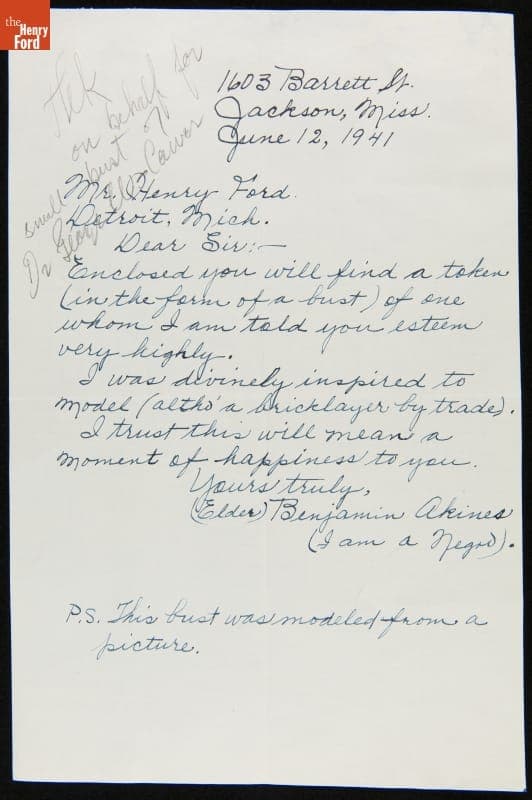 the
Henry
Ford
on behalf for
small bust of
Dr George Carver
1603 Barrett St.
Jackson, Miss.
June 12, 1941
Mr. Henry Ford.
Detroit, Mich.
Dear Sir:-
Enclosed you will find a token
(in the form of a bust) of one
whom I am told you esteem
very highly.
I was divinely inspired to
model (altho' a bricklayer by trade).
I trust this will mean a
moment of happiness to you.
Yours truly,
(Elder) Benjamin Akines
(I am a Negro).
P.S. This bust was modeled from a
picture.